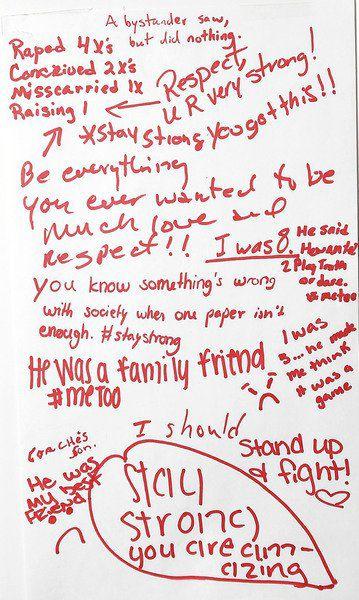 A bystander saw,
but did nothing.
Raped 4x's
Concieved 2x's
Misscarried 1x
Raising 1
Respect,
U R very strong!
*stay strong you got this!!
Be everything
you ever wanted to be
Much love and
respect!!
I was 8.
He said
He wanted
2 Play Truth
or dare.
#metoo
You know something's wrong
with society when one paper isn't
enough. #staystrong
He was a family friend
#METOO
I was
5... he made
me think
it was a
game
I should
coache's
son.
He was
my best
friend
Stand up
& fight!
Stay
strong
you are am-
azing